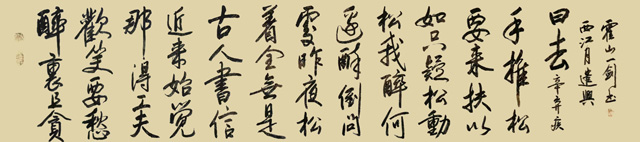 醉裏且貪
歡笑要愁
那得工夫
近來始覺
古人書信
着全無是
處昨夜松
邊醉倒問
松我醉何
如只疑松動
要來扶以
手推松
曰去 辛弃疾
西江月遣興
霍山一剑书